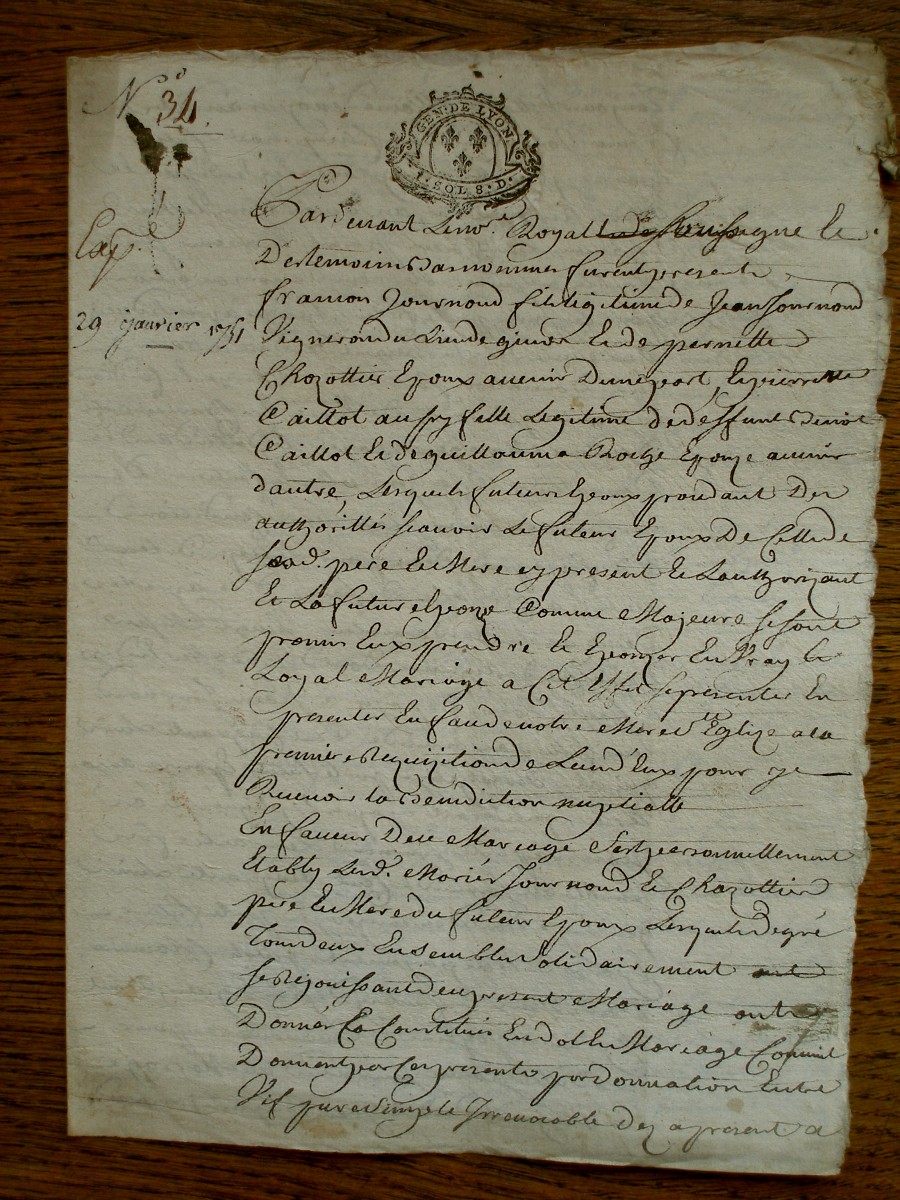 No 34
GEN·DE LYON
1·SOL 8·D·
Exp.
29 janvier 1751
Pardevant Le no.re Royal soussigne Et
Des temoins bas nommes furent presents
francois Journoud fils legitime de Jean Journoud
Vigneron du Lieu de givor Et de pernette
Chazottier Epoux avenir Dune part, Et pierrette
Caillot aussy fille Legitime de deffunts benoit
Caillot Et de guillauma Roche Epouze avenir
dautre, Lesquels futurs Epoux procedant Des
authorittés scavoir Le futeur Epoux De Celle de
sesd. pere Et Mere cy present Et Lauthorizant
Et La future Epouze Comme Majeure se sont
promis Eux prendre Et Epouzer En Vray Et
Loyal Mariage a Cet Effet se presenter En
presenter En face de notre Mere s.te Eglize a la
premiere Requizition de Lun d'Eux pour y
Recevoir la benediction nuptialle
En faveur De ce Mariage s'est personnellement
Etably Lesd. Mariés Journoud Et Chazottier
pere Et Mere du futeur Epoux Lesquels de gré
Tous deux Ensemble solidairement
se Rejouissant du present Mariage ont
Donnés Et Constitués En dot Et Mariage Comme
Donnent par Ces presentes par donnation Entre
Vif pure simple Irrevocable des a present a